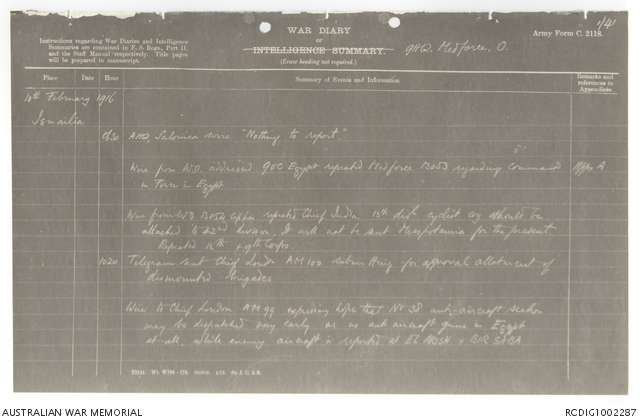 1/41
Army Form C. 2118.
WAR DIARY
or
INTELLIGENCE SUMMARY.
(Erase heading not required.)
GHQ. Medforce, O.
Instructions regarding War Diaries and Intelligence
Summaries are contained in F. S. Regs., Part II.
and the Staff Manual respectively. Title pages
will be prepared in manuscript.
Place Date Hour Summary of Events and Information Remarks and references to Appendices
10th February 1916
Ismailia
Salonica wire "Nothing to report"
Wire from W.O. addressed GOC Egypt repeated Medforce regarding command
in Egypt Appx A
Wire from WO repeated Chief India 13th div. cyclist coy should be
attached to 42nd division, it will not be sent Mesopotamia for the present.
Repeated & 9th Corps.
1020 Telegram sent Chief London AM 100 for approval allotment of
dismounted Brigades
Wire to Chief London AM 99 expressing hope that No 38 anti-aircraft section
may be dispatched very early as no anti aircraft guns in Egypt
at all, while enemy aircraft is reported at EL ARISH & BIR SABA
AUSTRALIAN WAR MEMORIAL
RCDIG1002287